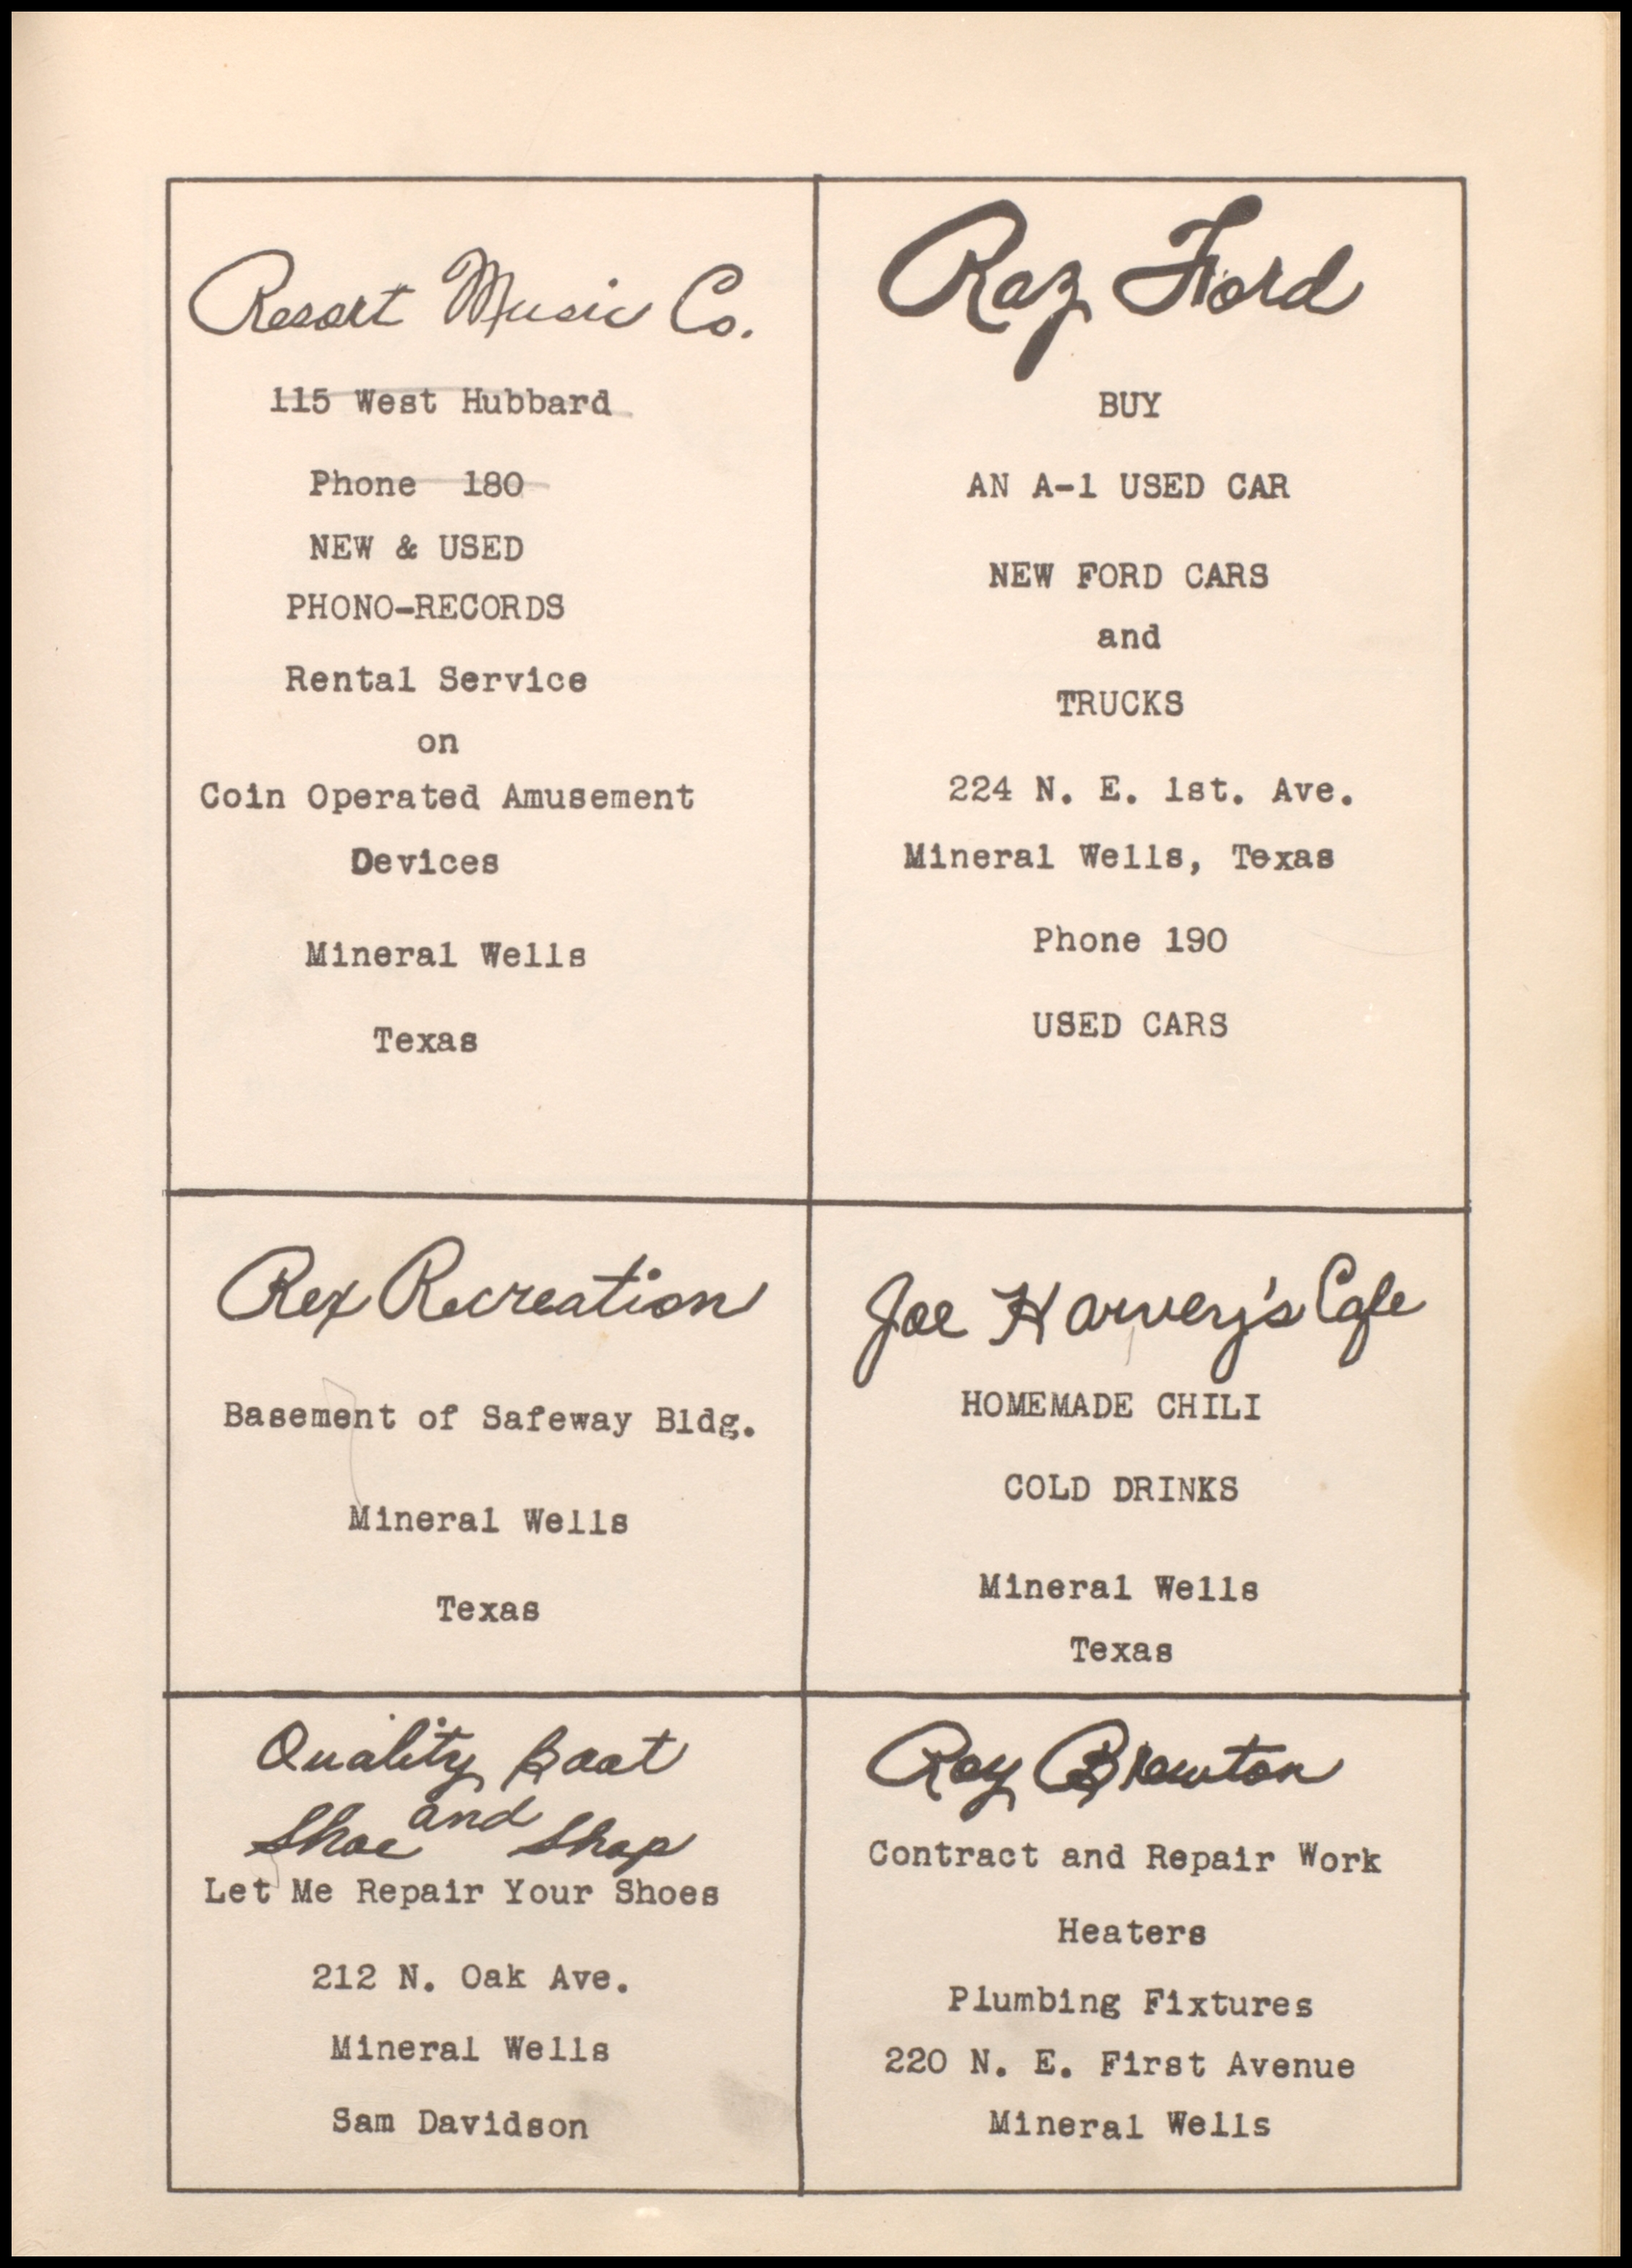 Resort Music Co.
115 West Hubbard
Phone 180
NEW & USED
PHONO-RECORDS
Rental Service
on
Coin Operated Amusement
Devices
Mineral Wells
Texas
Raz Ford
BUY
AN A-1 USED CAR
NEW FORD CARS
and
TRUCKS
224 N. E. 1st. Ave.
Mineral Wells, Texas
Phone 190
USED CARS
Rex Recreation
Basement of Safeway Bldg.
Mineral Wells
Texas
Joe Harvery's Cafe
HOMEMADE CHILI
COLD DRINKS
Mineral Wells
Texas
Quality Boot
and
Shoe Shop
Let Me Repair Your Shoes
212 N. Oak Ave.
Mineral Wells
Sam Davidson
Roy Brewton
Contract and Repair Work
Heaters
Plumbing Fixtures
220 N. E. First Avenue
Mineral Wells